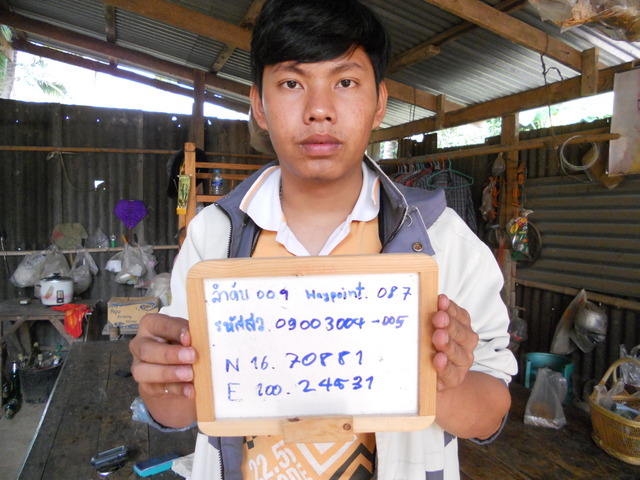 ลำดับ 009 Waypoint. 087
รหัสสว. 09003004-005
N 16. 70881
E 100. 24531
22.5